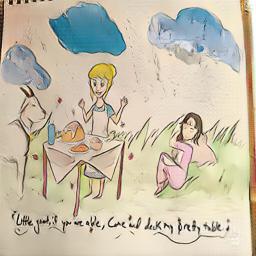 "Little goat, if you are able, Come and deck my pretty table."